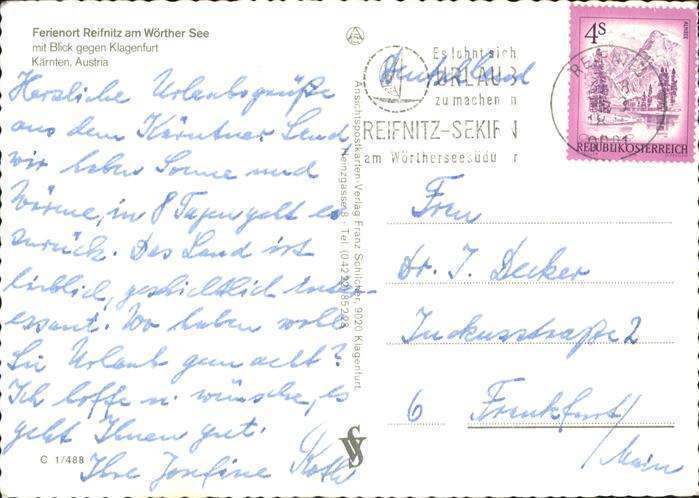 Ferienort Reifnitz am Wörther See
mit Blick gegen Klagenfurt
Kärnten, Austria
Herzliche Urlaubsgrüße
aus dem Kärntner Land,
wir haben Sonne und
Wärme, in 8 Tagen geht es
zurück. Das Land ist
lieblich, geschichtlich inter-
essant. Wo haben wohl
Sie Urlaub gemacht?
Ich hoffe u. wünsche, es
geht Ihnen gut.
Ihre Josefine
C 1/488
Ansichtskarten-Verlag Franz Schilcher, 9020 Klagenfurt,
Tel. (04222)
Deutschland
Es lohnt sich
URLAU
zu machen
REIFNITZ-SEKIRN
am Wörthersee südu
4S
REPUBLIK ÖSTERREICH
Frau
Dr. J. Decker
straße 2
6 Frankfurt/
Main